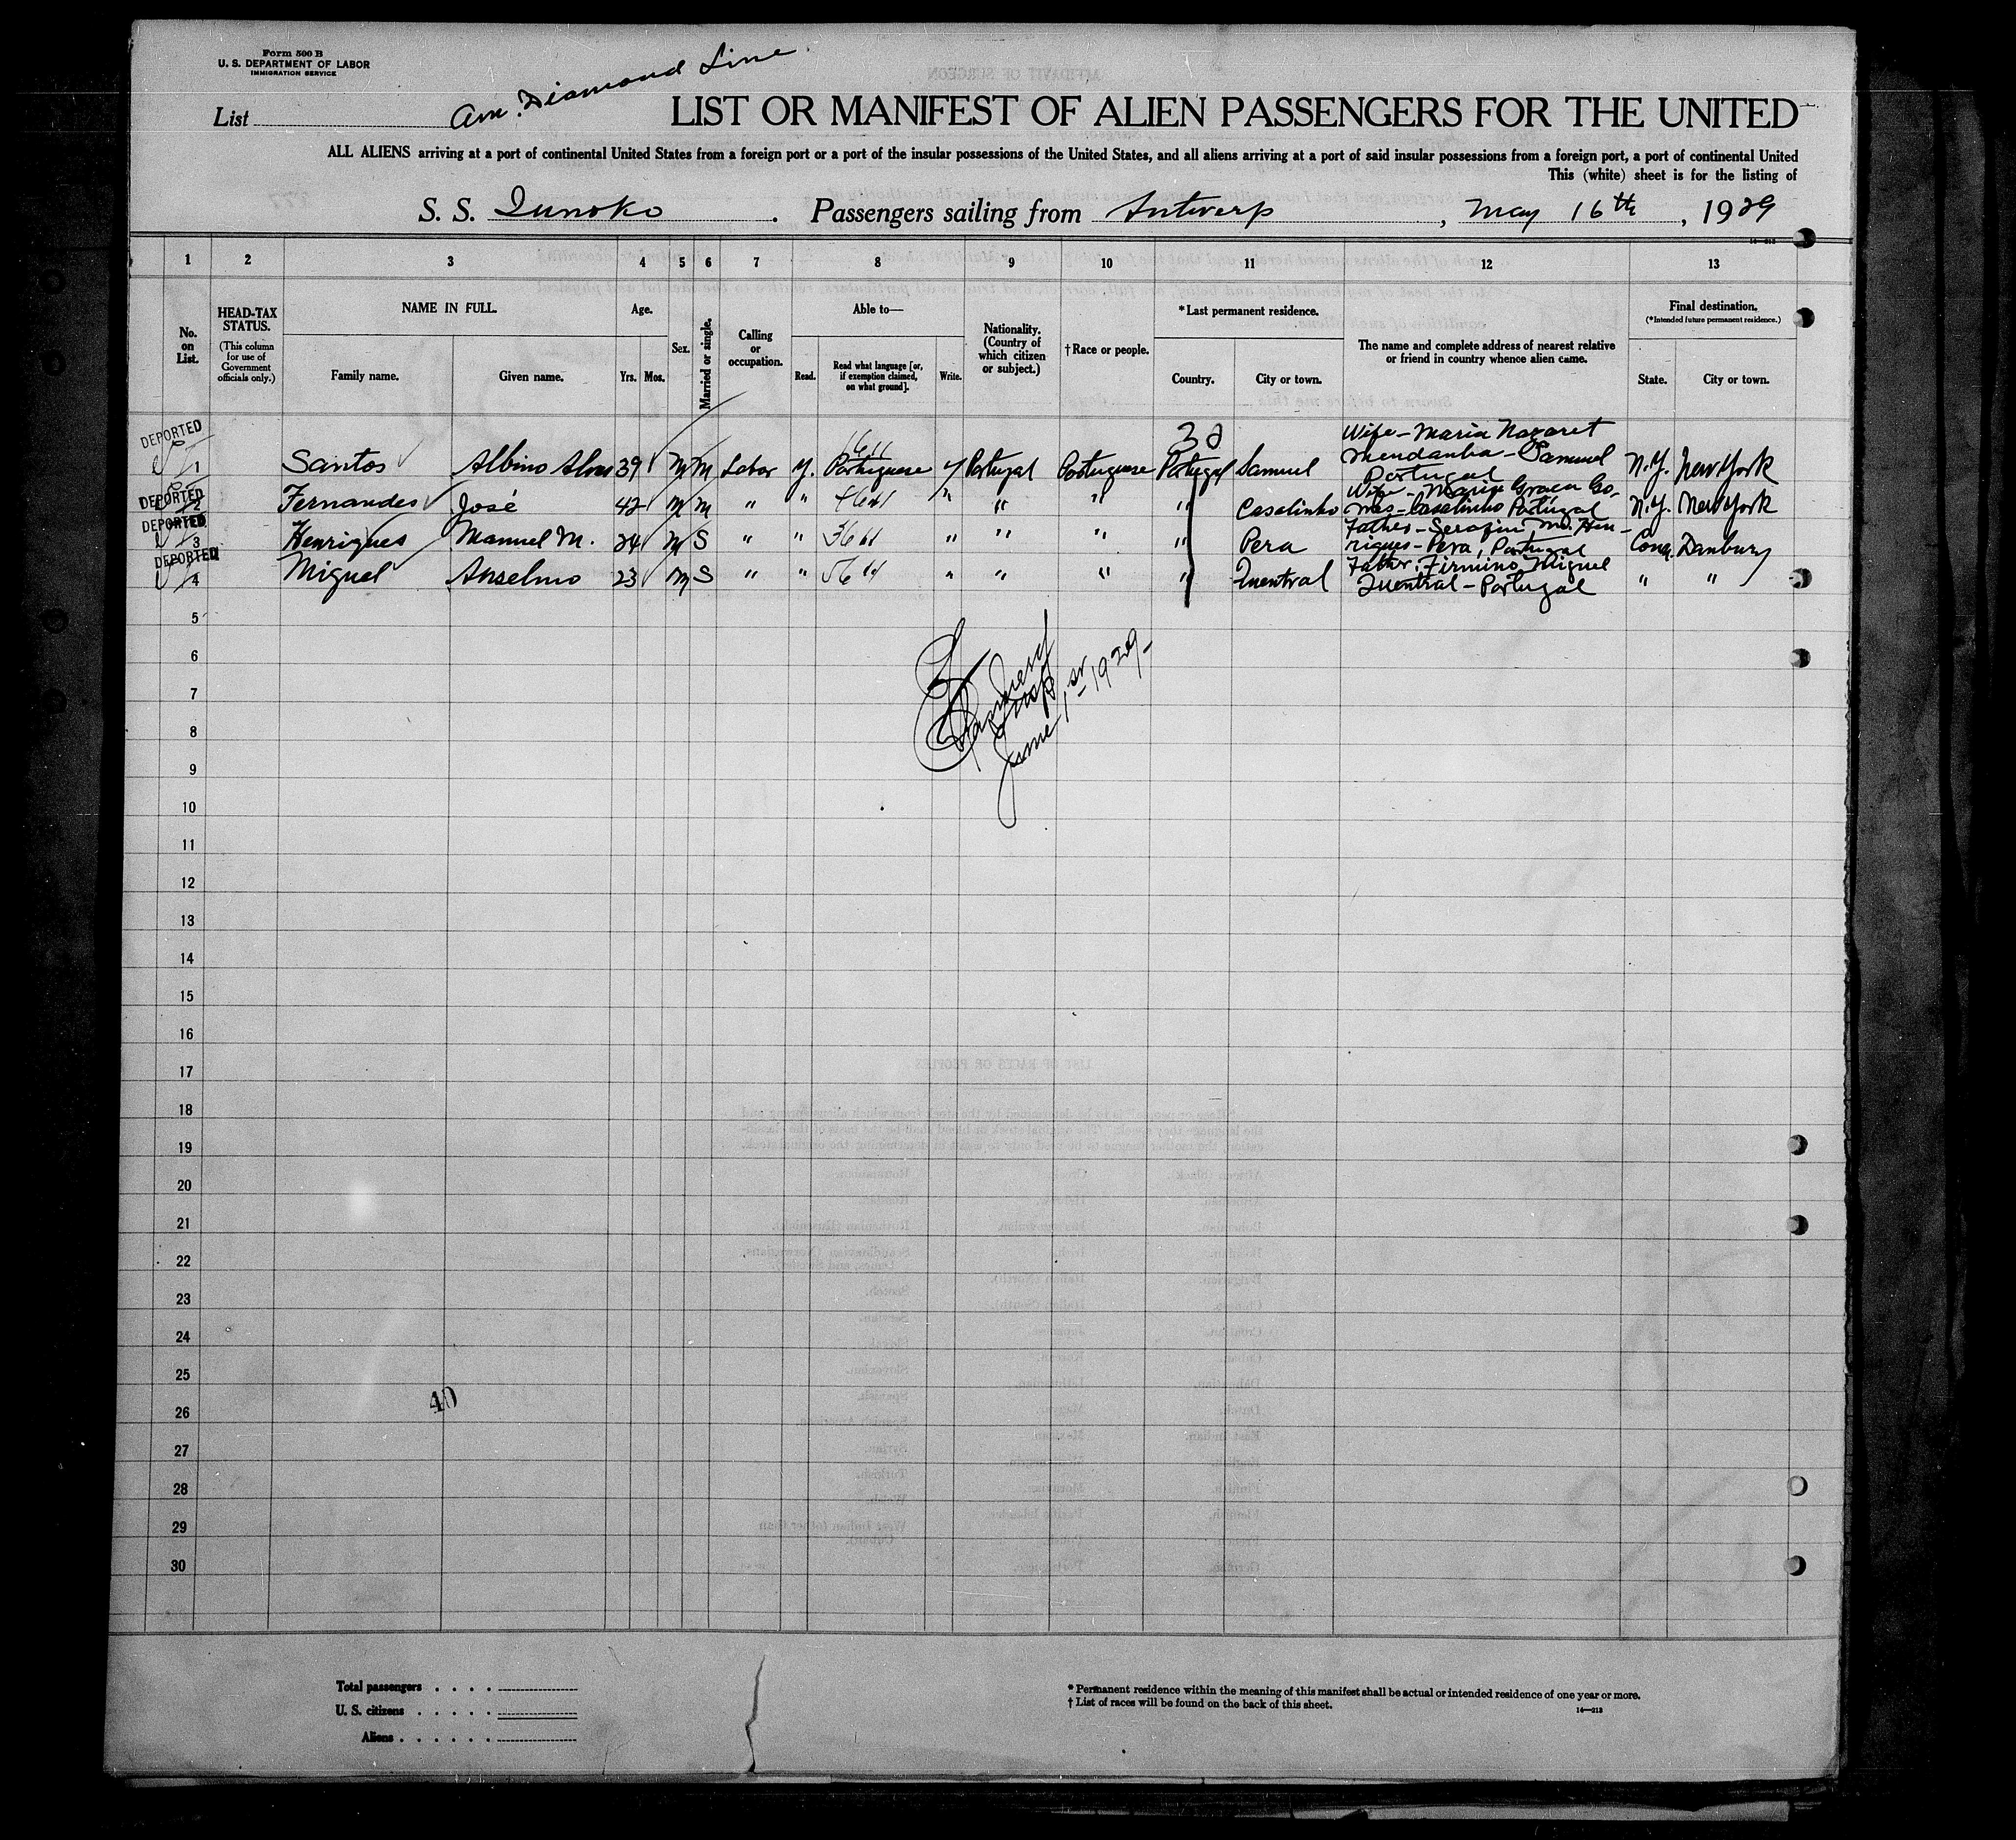 Form 500 B
U. S. DEPARTMENT OF LABOR
IMMIGRATION SERVICE
Am. Diamond Line
List
LIST OR MANIFEST OF ALIEN PASSENGERS FOR THE UNITED
ALL ALIENS arriving at a port of continental United States from a foreign port or a port of the insular possessions of the United States, and all aliens arriving at a port of said insular possessions from a foreign port, a port of continental United
This (white) sheet is for the listing of
S. S. Sunoko. Passengers sailing from Antwerp, May 16th, 1929
14—213
1 2 3 4 5 6 7 8 9 10 11 12 13
No. on List.
HEAD-TAX STATUS.
(This column for use of Government officials only.)
NAME IN FULL.
Family name. Given name.
Age.
Yrs. Mos.
Sex.
Married or single.
Calling or occupation.
Able to—
Read. Read what language [or, if exemption claimed, on what ground]. Write.
Nationality. (Country of which citizen or subject.)
† Race or people.
* Last permanent residence.
Country. City or town.
The name and complete address of nearest relative or friend in country whence alien came.
Final destination.
(* Intended future permanent residence.)
State. City or town.
DEPORTED
1 Santos Albino Alves 39 M M Labor y. Portuguese y Portugal Portuguese Portugal Samuel Wife - Maria Nazaret Mendanha - Samuel Portugal N.Y. New York
DEPORTED
2 Fernandes José 42 M M " " " " " " Casalinho Wife - Maria Graca Gomes - Casalinho Portugal N.Y. New York
DEPORTED
3 Henriques Manuel M. 24 M S " " " " " " Pera Father - Serafim M. Henriques - Pera, Portugal Conn. Danbury
DEPORTED
4 Miguel Anselmo 23 M S " " " " " " Quentral Father: Firmino Miguel Quentral - Portugal " "
5
6
Insp
June 1st 1929-
7
8
9
10
11
12
13
14
15
16
17
18
19
20
21
22
23
24
25
40
26
27
28
29
30
Total passengers
U. S. citizens
Aliens
* Permanent residence within the meaning of this manifest shall be actual or intended residence of one year or more.
† List of races will be found on the back of this sheet.
14—213